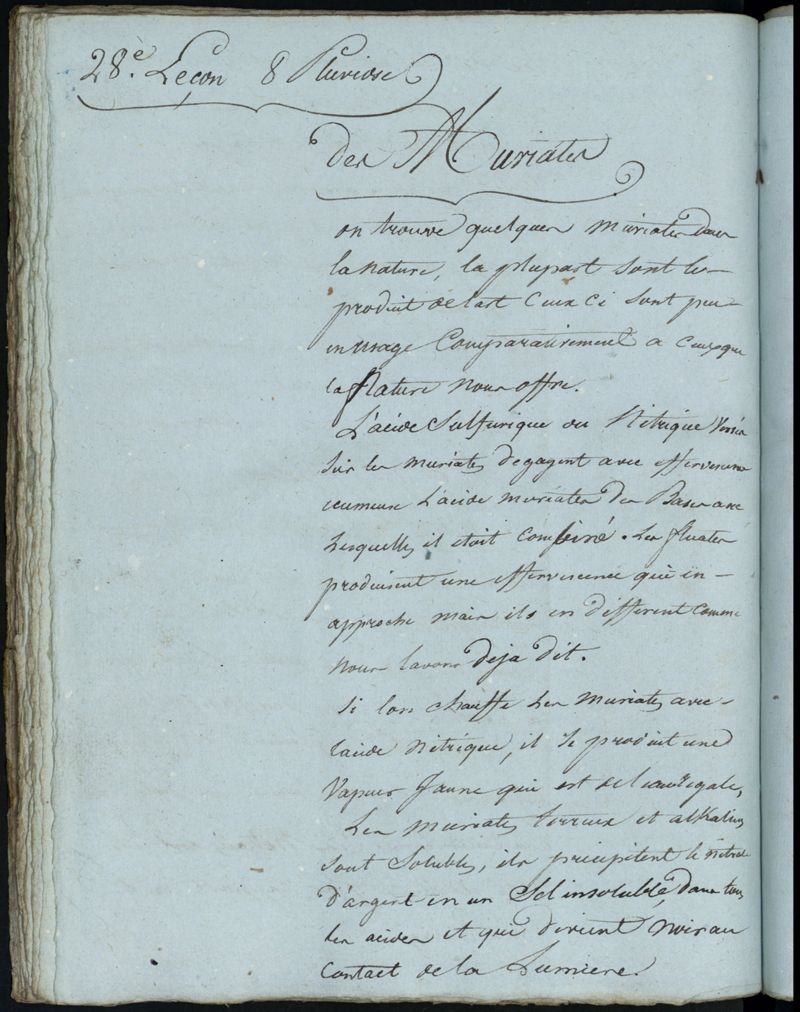 28.e Leçon 8 Pluviose
des Muriates
on trouve quelques muriates dans
la nature, la plupart sont le
produit de lart Ceux ci sont peu
en usage Comparativement a ceux que
la Nature nous offre.
L'acide Sulfurique ou Nitrique Versés
Sur les muriates degagent avec effervescence
ecumeuse L'acide muriates des Bases avec
Lesquelles il etoit combiné. Les fluates
produisent une effervescence qui en
approche mais ils en different comme
nous lavons deja dit.
Si lon chauffe Les muriates avec
lacide Nitrique, il se produit une
Vapeur Jaune qui est de leau regale,
Les muriates terreux et alkalins
sont Solubles, ils précipitent le nitrate
D'argent en un Sel insoluble dans tous
les acides et qui devient noir au
Contact de la Lumiere.